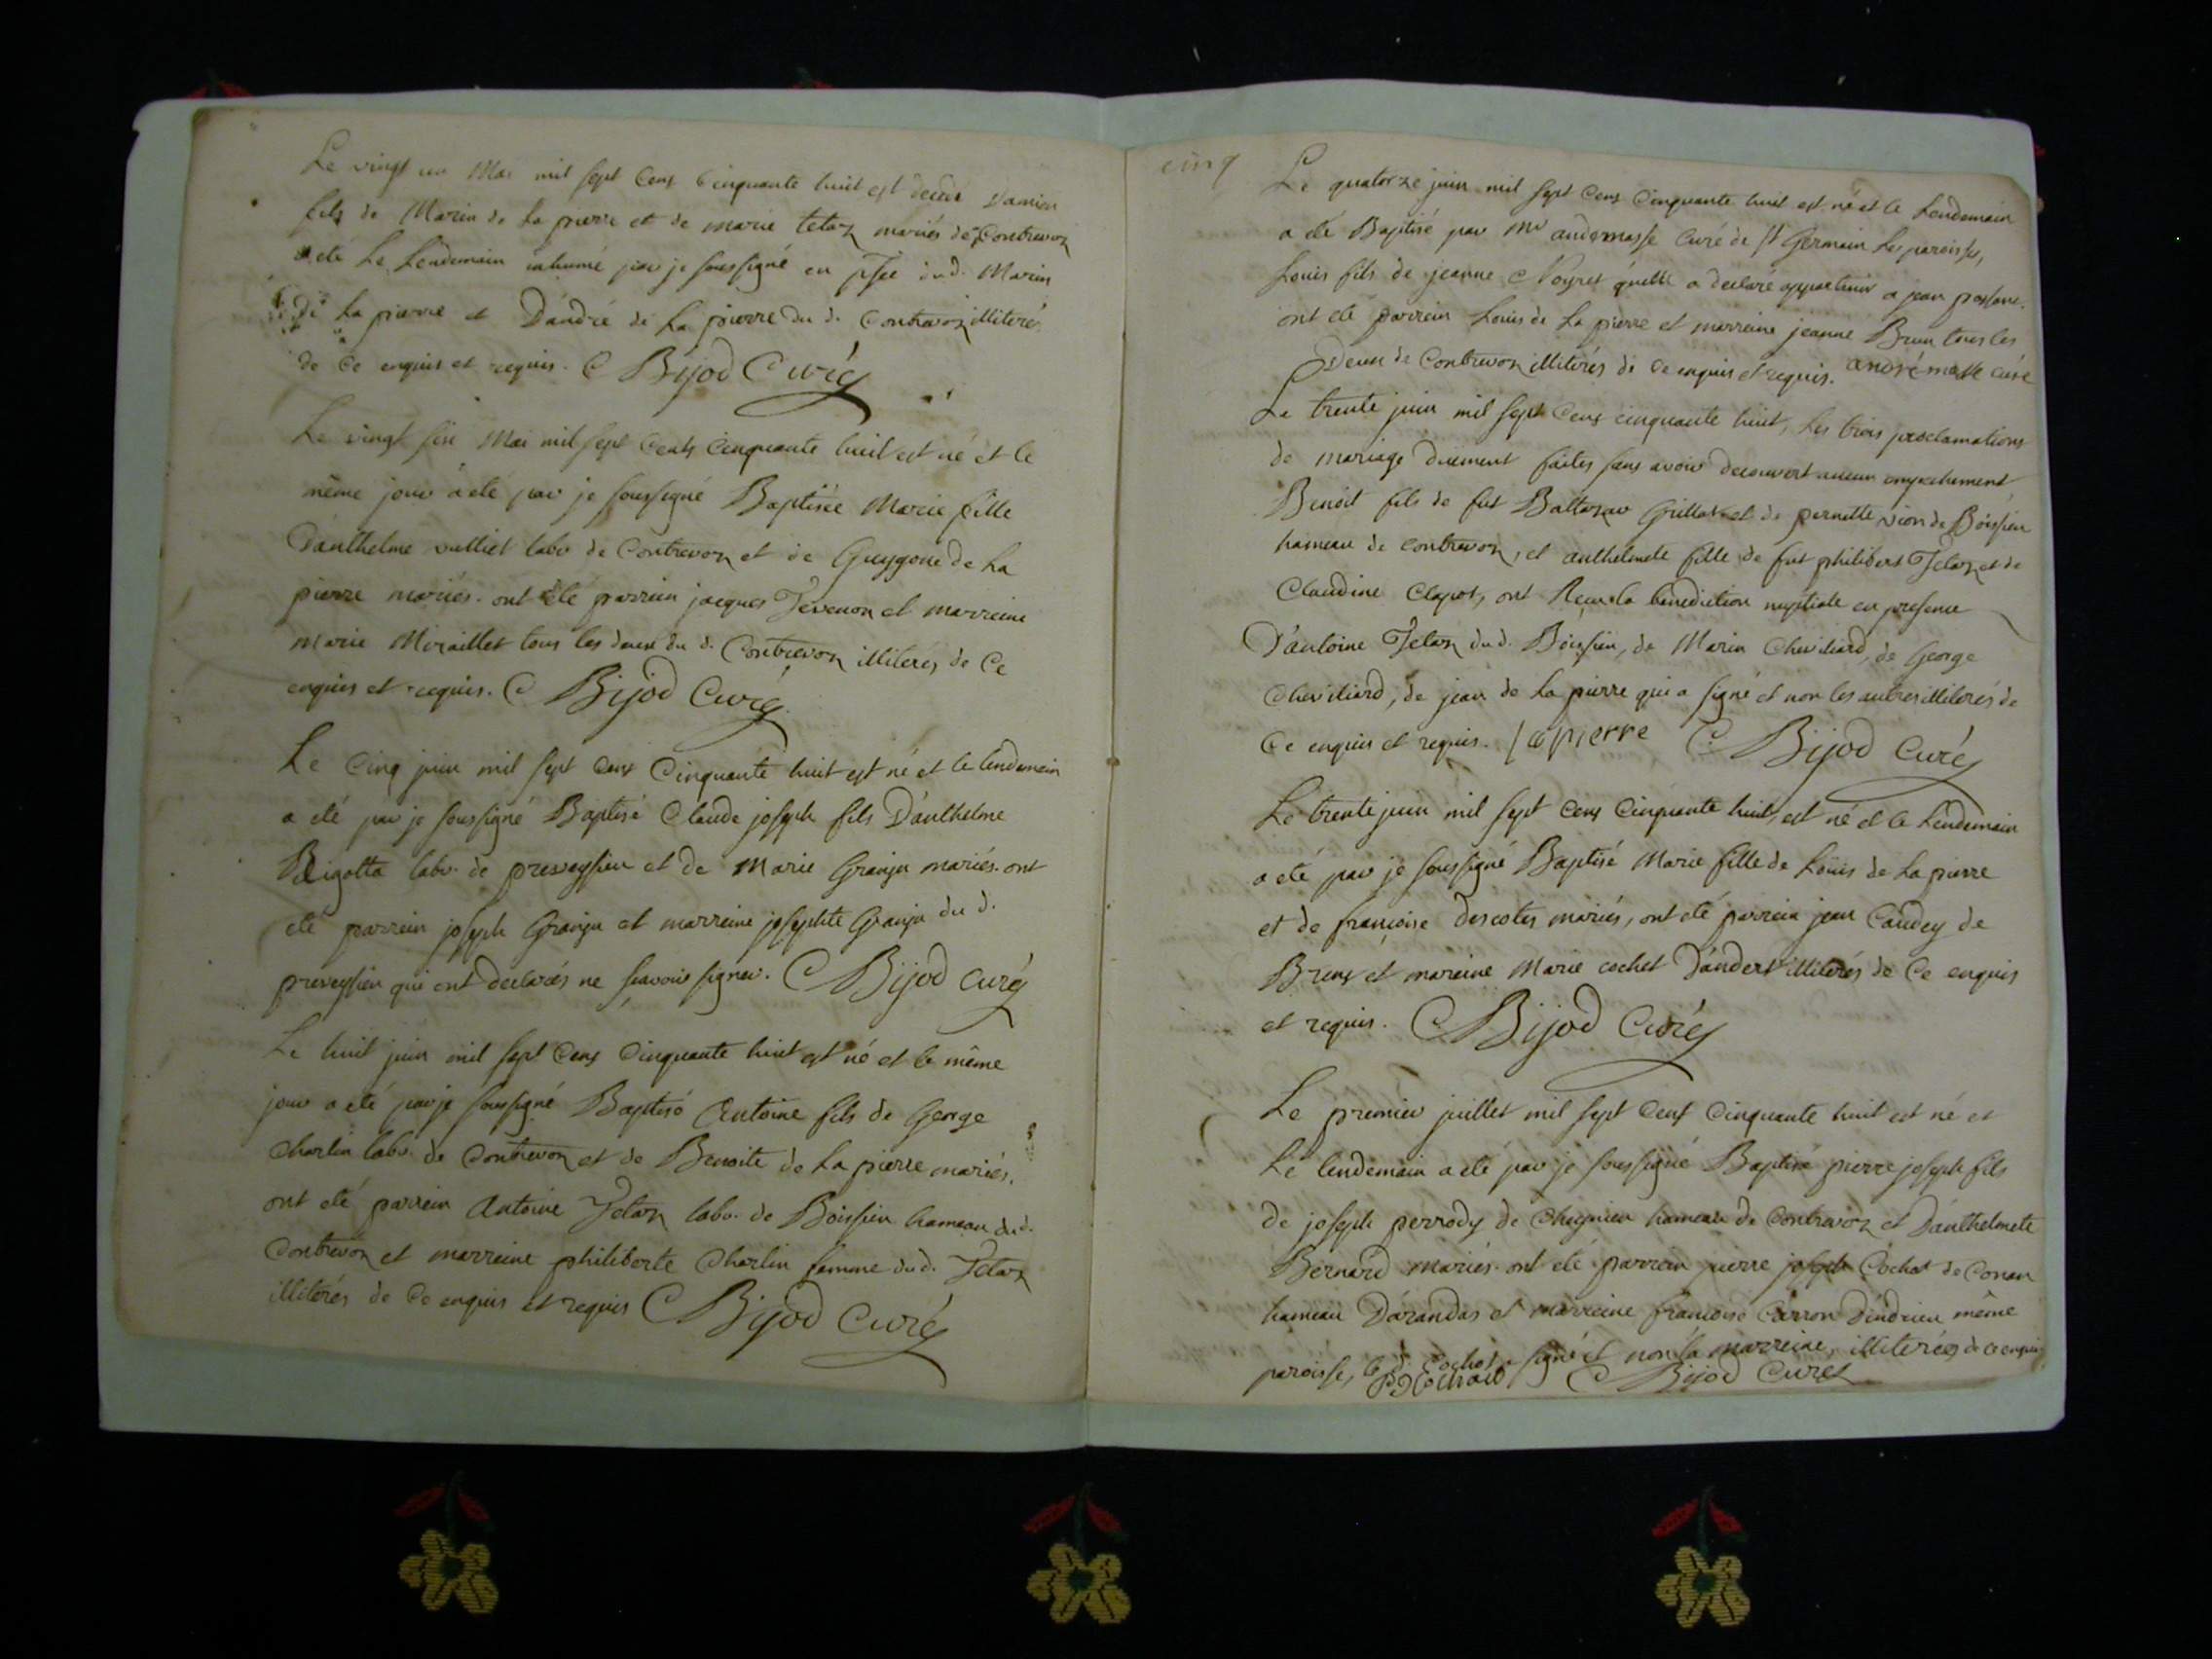 Le vingt un Mai mil sept Cens Cinquante huit est decedé Damien
fils de Marin de La pierre et de marie tetaz mariés de Contrevoz
a eté Le Lendemain inhumé par je soussigné en psce dud. Marin
de La pierre et D'andré de La pierre du d. Contrevoz illiterés
de Ce enquis et requis. Bijod Curé
Le vingt six Mai mil sept Cents Cinquante huit est né et le
même jour a eté par je soussigné Baptisée Marie fille
D'anthelme vulliet labr de Contrevoz et de Guygone de La
pierre mariés. ont eté parrein jacques Tevenon et marreine
marie Miraillet tous les deux du d. Contrevoz illiterés de Ce
enquis et requis. Bijod Curé
Le Cinq juin mil sept Cens Cinquante huit est né et le lendemain
a eté par je soussigné Baptisé Claude joseph fils D'anthelme
Bigotta labr. de preveyssieu et de Marie Granju mariés. ont
eté parrein joseph Granju et marreine josephte Granju du d.
preveyssieu qui ont declarés ne sçavoir signer. Bijod Curé
Le huit juin mil sept Cens Cinquante huit est né et le même
jour a eté par je soussigné Baptisé Antoine fils de George
Charlin labr. de Contrevoz et de Benoite de La pierre mariés.
ont eté parrein Antoine Jetaz labr. de Boissieu hameau dud.
Contrevoz et marreine philiberte Charlin femme dud. Jetaz
illiterés de Ce enquis et requis Bijod Curé
cinq
Le quatorze juin mil sept Cens Cinquante huit est né et le Lendemain
a eté Baptisé par Mr andremasse Curé de St Germain Les paroisses,
Louis fils de jeanne Noyret qu'elle a declaré appartenir a jean
ont eté parrein Louis de La pierre et marreine jeanne Brun tous les
Deux de Contrevoz illiterés de Ce enquis et requis. andrémasse curé
Le trente juin mil sept Cens cinquante huit, Les trois proclamations
de mariage duement faites sans avoir decouvert aucun empechement
Benoit fils de fut Baltazar Grillat et de pernette vion de Boissieu
hameau de contrevoz, et anthelmete fille de fut philibert Jetaz et de
Claudine Clapot, ont Reçu la benediction nuptiale en presence
D'antoine Jetaz dud. Boissieu, de Marin Chevillard, de George
Chevillard, de jean de La pierre qui a signé et non les autres illiterés de
Ce enquis et requis. lapierre Bijod Curé
Le trente juin mil sept Cens Cinquante huit, est né et le Lendemain
a eté par je soussigné Baptisé Marie fille de Louis de La pierre
et de françoise descotes mariés, ont eté parrein jean Caudey de
Brens et mareine Marie cochet D'andert illiterés de Ce enquis
et requis. Bijod Curé
Le premier juillet mil sept Cens Cinquante huit est né et
Le lendemain a eté par je soussigné Baptisé pierre joseph fils
de joseph perrody de Cheignieu hameau de Contrevoz et D'anthelmete
Bernard mariés. ont eté parrein pierre joseph Cochet de Conan
hameau D'arandas et marreine françoise Carron D'indrieu même
paroisse, le d. Cochet a signé et non la marreine, illiterées de ce enquis
Bijod Curé